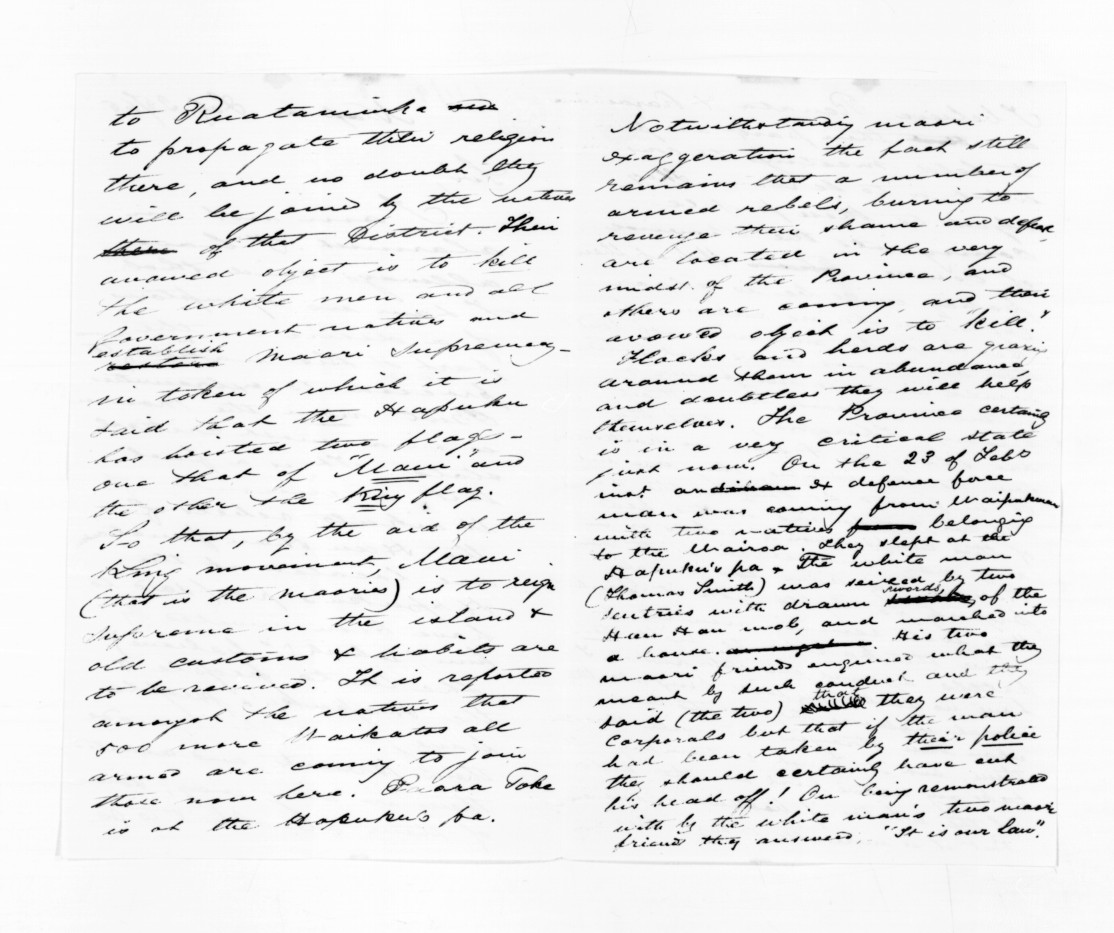 to Ruataniwha and
to propagate their religion
there, and no doubt they
will be joined by the natives
there of that District. Their
avowed object is to kill
the white men and all
Government natives and
establish
restore maori supremacy -
in token of which it is
said that the Hapuku
has hoisted two flags -
one that of "Maui" and
the other the King flag.
So that, by the aid of the
King movement, Maui
(that is the maories) is to reign
supreme in the island &
old customs & habits are
to be revived. It is reported
amongst the natives that
500 more Waikatos all
armed are coming to join
those now here. Paora Toke
is at the Hapuku's pa.
Notwithstanding maori
exaggeration the fact still
remains that a number of
armed rebels, burning to
revenge their shame and defeat,
are located in the very
midst of the Province, and
others are coming, and their
avowed object is to "kill."
Flocks and herds are grazing
around them in abundance,
and doubtless they will help
themselves. The Province certainly
is in a very critical state
just now. On the 23 of Feb
inst an ex defence force
man was coming from Waipukurau
with two natives from belonging
to the Wairoa. They slept at the
Hapuku's pa & The white man
(Thomas Smith) was seized by two
swords,
sentries with drawn of the
Hau Hau mob, and marched into
a house. His two
maori friends enquired what they
meant by such conduct and they
that
said (the two) they were
corporals but that if the man
had been taken by their police
they should certainly have cut
his head off! On being remonstrated
with by the white man's two maori
friends they answered, "It is our law".